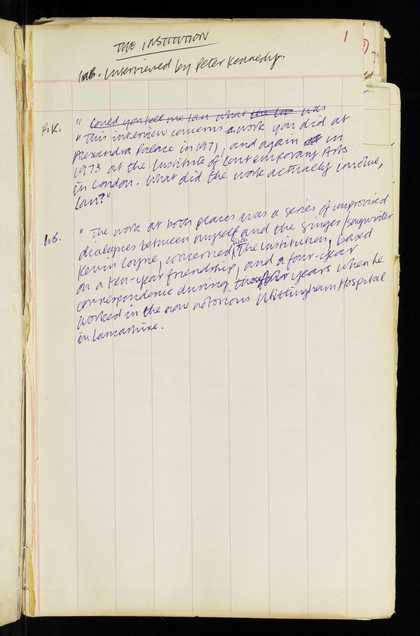 THE INSTITUTION
1
I.B. Interviewed by Peter Kennedy.
P.K. " Could you tell me Ian what the was
"This interview concerns a work you did at
Alexandra Palace in 1971, and again at in
1973 at the Institute of Contemporary Arts
in London. What did the work actually involve,
Ian?"
I.B. " The work at both places was a series of improvised
dialogues between myself and the singer/songwriter
Kevin Coyne, concerned, The Institution, based
on a ten-year friendship, and a four-year
correspondence during the four years when he
worked in the now notorious Whittingham Hospital
in Lancashire.